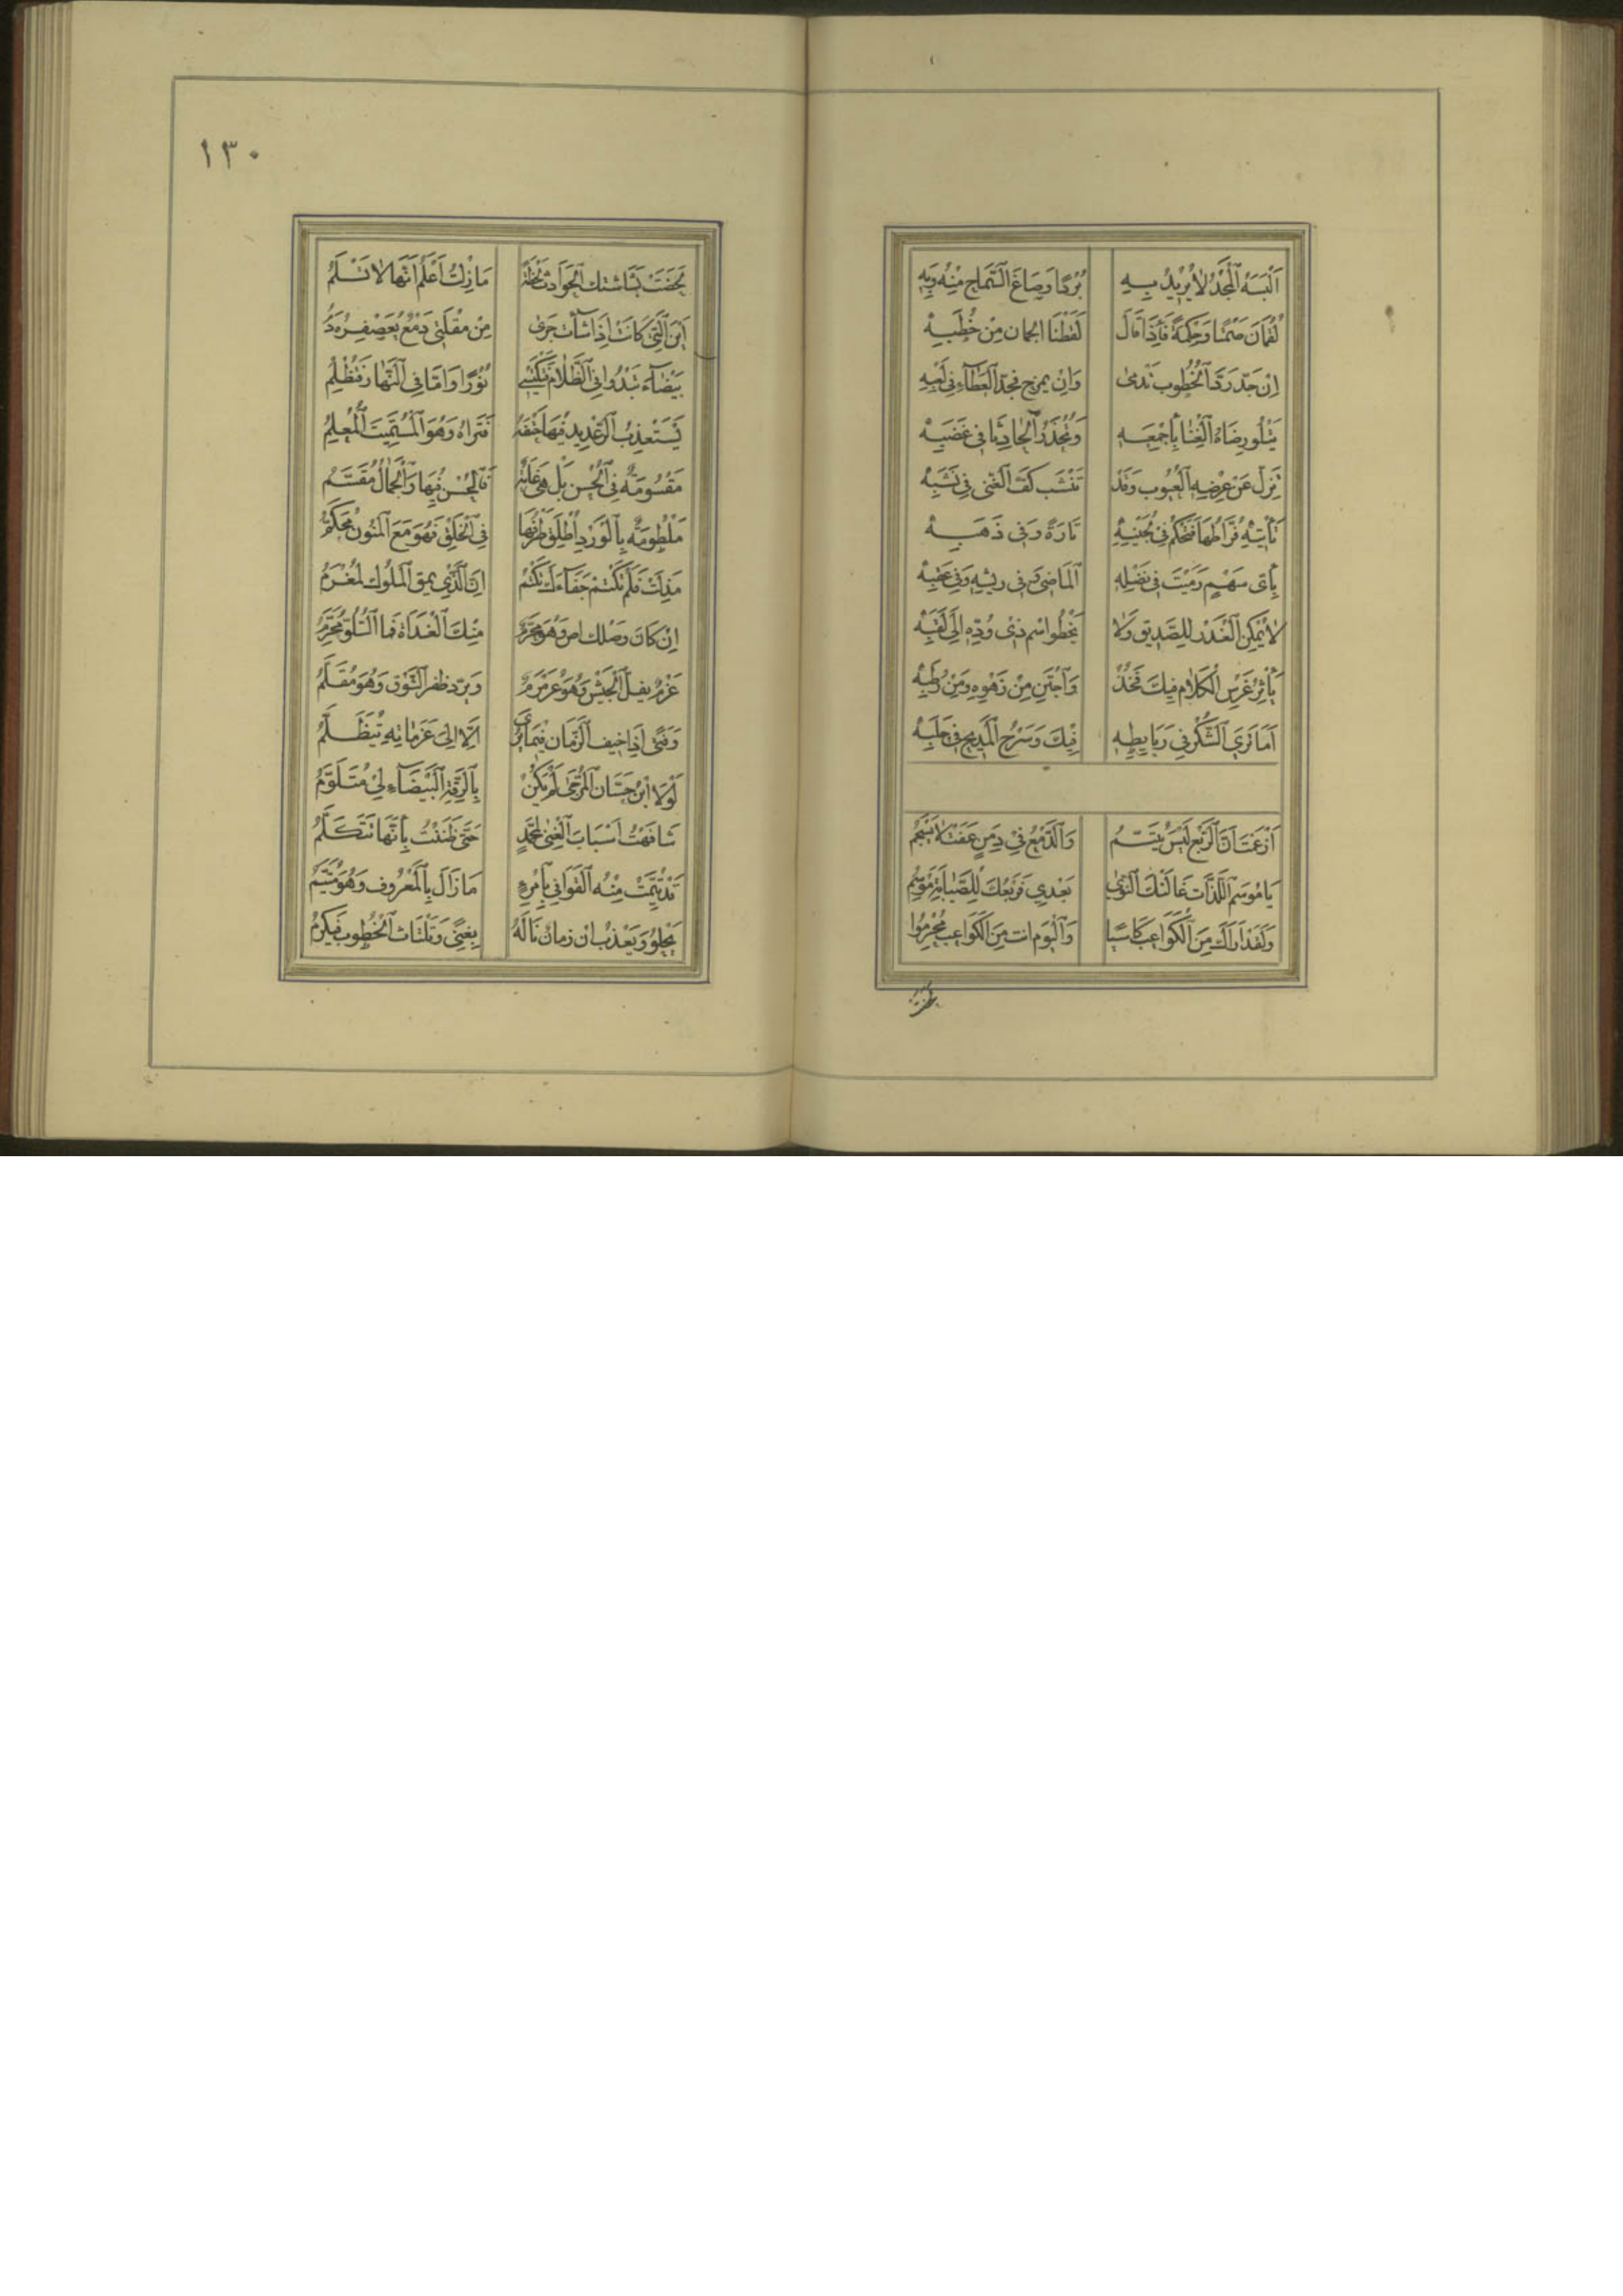 اَلْبَسَهُ الْمَجْدُ لَا يُرِيدُ بِهِ بُرْدًا وَصَاغَ السَّمَاحَ مِنْهُ وَبِهِ
لُقْمَانَ صَمْتًا وَحِكْمَةً فَإِذَا قَالَ لَقَطْنَا الجمان مِنْ خُطَبِهْ
اِنْ جَدَّ رَدَّ الْخُطُوبَ تَدْمَى وَاِنْ يمزح فجدّ العَطَآءِ فِي لَعِبِهِ
يَتْلُو رِضَاهُ الْغِنَا بِأَجْمَعِهِ وَتُحْذَرُ الْحَادِثَاتُ فِي غَضَبِهْ
تَزِلُّ عَنْ عِرْضِهِ الْعُيُوبُ وَقَدْ تَنْشَب كَفّ الْغَنِى فِي نَشَبِهْ
تَأْتِيهِ فُرَّاطُهَا فَتَحْكُمُ فِي لُجَيْنِهِ تَارَةً وَفِي ذَهَبِهْ
بِأَى سَهْمٍ رَمَيْتَ فِي نَصْلِهِ الْمَاضِى وَفِي ريشِهِ وَفِي عَقِبِهْ
لَا يُمْكِن الْغَدْر لِلصَّدِيقِ وَلَا يَخْطُو اسْم ذِى وُدِّهِ اِلَى لَقَبِهْ
يَأْثِرُ غَرِسَ الْكَلَامِ فِيكَ فَخُذْ وَاجْتَنِ مِنْ زَهْوِهِ وَمِنْ رُطَبِهْ
اَمَا تَرَى الشُّكْرَ فِي رَبَايِطِهِ فِيكَ وَسَرْحَ الْمَدِيحِ فِي جَلَبِهْ
اَزَعَمْتَ اَنَّ الرَّبْعَ لَيْسَ يُتَيَّمُ وَالدَّمْعُ فِي دِمَنٍ عَفَتْ لَا يَسْجُمُ
يَا مُوسِمَ اللَّذَّاتِ غَالَتْكَ النَّوَى بَعْدِي فَرَبْعُكَ لِلصَّبَابَةِ مَوْسِمُ
وَلَقَدْ اَرَاكَ مِنَ الْكَوَاعِبِ كَاسِيًا وَالْيَوْمَ انت مِنَ الْكَوَاعِبِ مُحْرِمُوا
لحظت
١٣٠
لَحَظَتْ بَشَاشتك الْحَوَادِثُ لَحْظَةً مَا زِلْتُ اَعْلَمُ اَنَّهَا لَا تَسْلَمُ
اَيْنَ الَّتِى كَانَتْ اِذَا شَآءت جَرَى مِنْ مُقْلَتِى دَمْعٌ يُعَصْفِرُهُ دَمُ
بَيْضَآءُ تَبْدُوا فِي الظَّلَامِ فَيَكْتَسِي نُوْرًا وَامّا فِي النَّهَارِ فَتُظْلِمُ
يَسْتَعْذِبُ الرّعْدِيدُ فِيهَا حَتْفَهُ فَتَرَاهُ وَهُوَ الْمُسْتَمِيتُ الْمُعْلِمُ
مَقْسُومَةٌ فِي الْحُسْنِ بَلْ هِيَ غَايَةٌ فَالْحُسْنُ فِيهَا وَالْجَمَالُ مُقَسَّمُ
مَلْطُومَةٌ بِالْوَرْدِ اُطْلِقَ طَرْفُهَا فِي الْخَلْقِ فَهُوَ مَعَ الْمَنُونِ مُحَكَّمُ
مَذِلَتْ فَلَمْ تَكْتُمْ جَفَآءَكَ تَكْتُمُ اِنَّ الَّذِي يمق الْمَلُولَ لَمُغْرَمُ
اِنْ كَانَ وَصْلك اض وَهُوَ مُحَرَّمٌ مِنْكَ الْغَدَاةَ فما السُّلُوُّ مُحَرَّمُ
عَزْمٌ يفلّ الْجَيْشَ وَهُوَ عَرَمْرَمٌ وَيَرُدّ ظفر الشَّوْقِ وَهُوَ مُقَلَّمُ
وَفَتًى اِذَا خيف الزَّمَان فَمَا يُرَى اِلَّا اِلَى عَزَمَاتِهِ يُتَظَلَّمُ
لَوْلَا ابْنُ حَسَّانَ الْمُرَجَّى لَمْ يَكُنْ بِالرَّقَّةِ الْبَيْضَآءِ لِي مُتَلَوَّمُ
شَافَهْتُ اَسْبَابَ الْغِنَى بِمُحَمَّدٍ حَتَّى ظَنَنْتُ بِأَنَّهَا تَتَكَلَّمُ
قَدْ تُيِّمَتْ مِنْهُ الْقَوَافِي بِامْرِئٍ مَا زَالَ بِالْمَعْرُوفِ وَهُوَ مُتَيَّمُ
يَحْلُو وَيَعْذُبُ ان زمان نَالَهُ بِغِنًى وَتَلْتَاث الْخُطُوب فَيَكْرُمُ